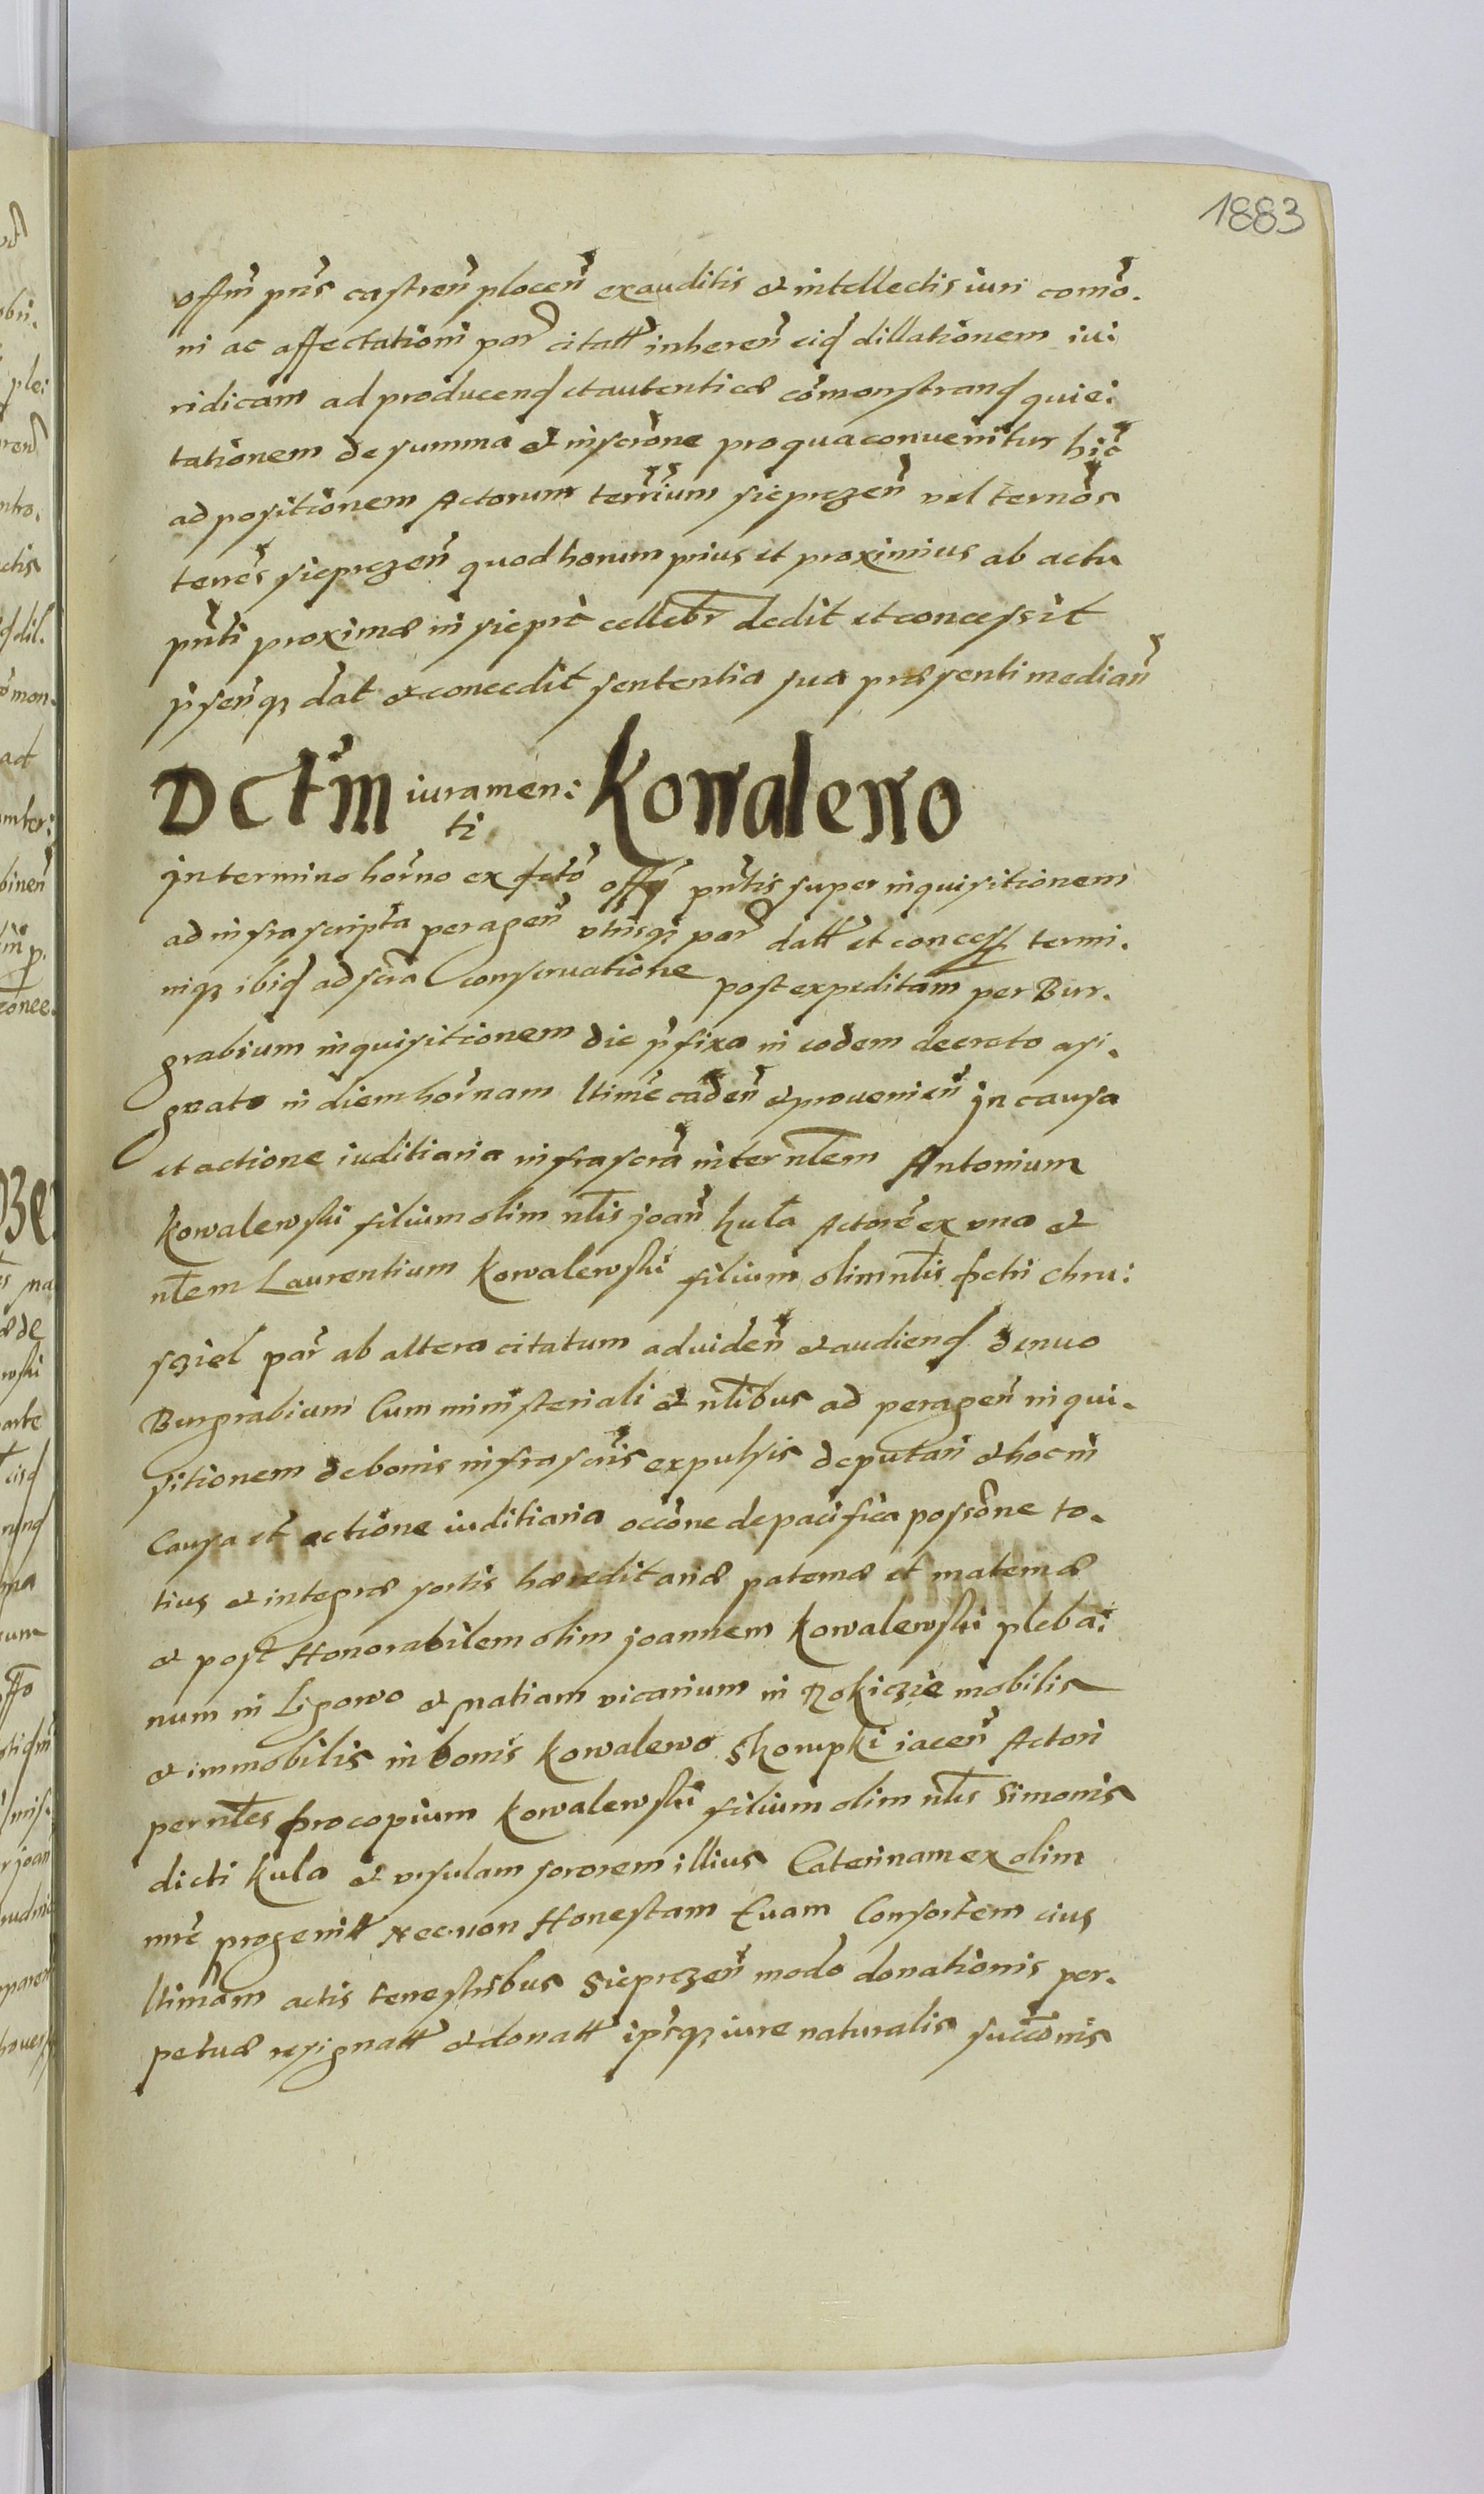 1883
offm pns castren plocen exauditis et intellectis iuri como.
ni ac affectationi par citatt inheren eid dillationem iu:
ridicam ad producend et autenticæ comonstrand quie:
tationem de summa et inscrone pro qua convenitur hic
ad positionem Actorum terrium sieprzen vel ternos
terres sieprzen quod horum prius et proximius ab actu
pnti proximæ in sieprc cellebr dedit et concessit
psenq dat et concedit sententia sua præsenti median
Dctm iuramen:
ti Kowalewo
In termino horno ex dcto offy pntis super inquisitionem
ad infrascripta peragen vtrisq par datt et concess termi.
niq ibid ad scra conservatione post expeditam per Bur.
grabium inquisitionem die pfixa in eodem decreto asi.
gnato in diem hornam ltime caden et provenien In causa
et actione iuditiaria infrascra inter nlem Antonium
Kowalewski filium olim nlis joan huta Actore ex una et
nlem Laurentium Kowalewski filium olim nlis Petri Chru:
sziel par ab altera citatum ad viden et audiend denuo
Burgrabium Cum ministeriali et nlibus ad peragen inqui.
sitionem de bonis infrascris expulsis deputari et hoc in
Causa et actione iuditiaria occone de pacifica possone to.
tius et integræ sortis hæreditariæ paternæ et maternæ
et post Honorabilem olim joannem Kowalewski pleba:
num in Ligowo et vicarium in Rokiczie mobilis
et immobilis in bonis Kowalewo Skorupki iacen Actori
per nles Procopium Kowalewski filium olim nlis Simonis
dicti kula et vrsulam sororem illius Caterinam ex olim
mre progenitt Nec non Honestam Evam Consortem eius
ltimam actis terrestribus Sieprzen modo donationis per.
petuæ resignatt et donatt ipsq iure naturalis succonis